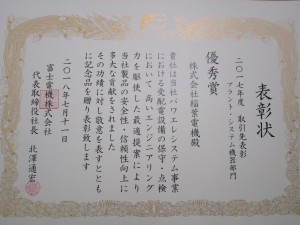 表彰状
二〇一七年度 取引先表彰
プラント・システム機器部門
優秀賞
株式会社稲葉電機殿
貴社は当社パワエレシステム事業
における受配電設備の保守・点検
において高いエンジニアリング
力を駆使した最適提案により
当社製品の安全性・信頼性向上に
多大な貢献をされました
その功績に対し敬意を表すととも
に記念品を贈り表彰致します
二〇一八年七月十一日
富士電機株式会社
代表取締役社長 北澤通宏